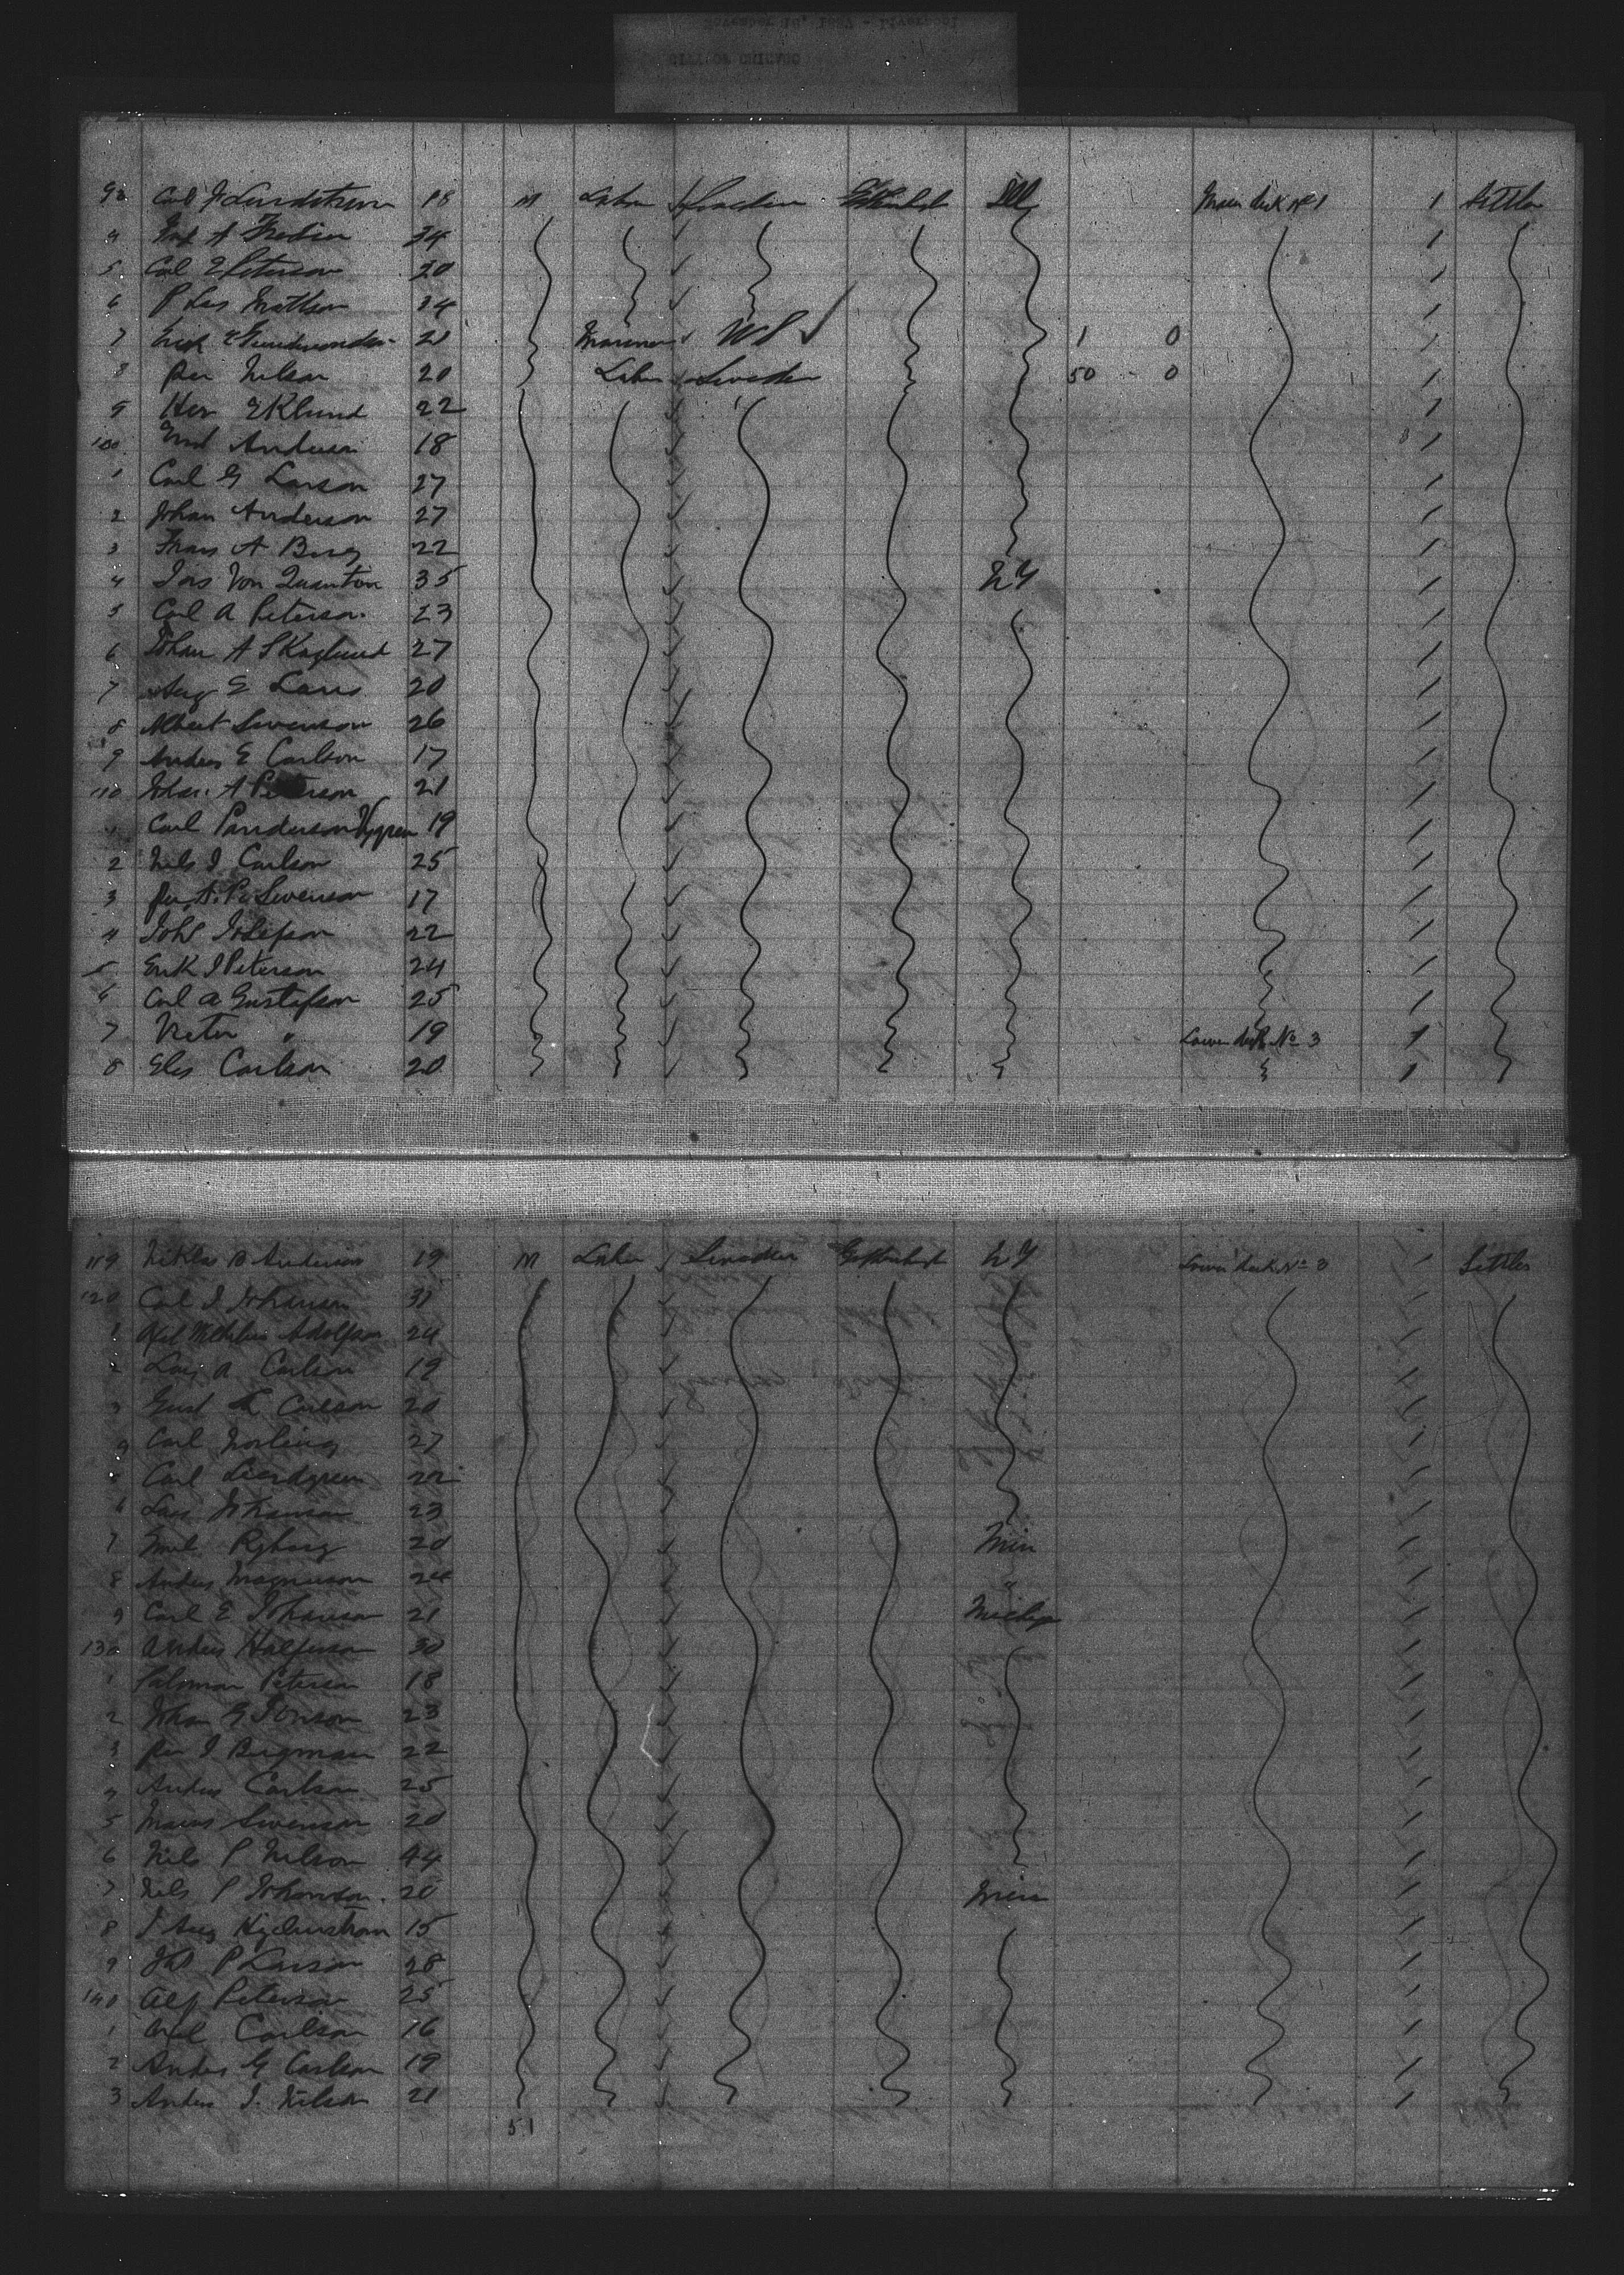 November 18, 1887 - Liverpool
CITY OF CHICAGO
93 Carl J Lundstrum 18 M Labor Sweden Gothenbch Ill Main deck No 1 1 Settler
4 A 34 1
5 Carl E Peterson 20 1
6 P Lars Mattson 24 1
7 Erick 21 Mariner 1 0 1
8 Per Nelson 20 Labor Sweden 50 - 0 1
9 Her Eklund 22 1
100 Anderson 18 1
1 Carl G Larson 27 1
2 Johan Anderson 27 1
3 Frans A Berg 22 1
4 Von Quanton 35 NY 1
5 Carl A Peterson 23 1
6 Johan A Skoglund 27 1
7 Aug E Lars 20 1
8 Albert Swenson 26 1
9 Anders E Carlson 17 1
110 Johan A Peterson 21 1
1 Carl Panderson 19 1
2 Nels J Carlson 25 1
3 Per A. P. Swenson 17 1
4 Johs Josefson 22 1
5 Erik J Peterson 24 1
6 Carl A Gustafson 25 1
7 Victor " 19 Lower deck No 3 1
8 Carlson 20 1
119 Niklas B Anderson 19 M Labor Sweden Gothenbch NY Lower deck No 3 1 Settler
120 Carl J Johanson 31 1
1 Axel Adolfson 24 1
2 A Carlson 19 1
3 Gust Carlson 20 1
4 Carl Norling 27 1
5 Carl Lindgren 22 1
6 Lars Johanson 23 1
7 Emil Ryberg 20 Min 1
8 Anders Magnuson 24 " 1
9 Carl E Johanson 21 Michgn 1
130 Anders Halferson 30 1
1 Salomon Peterson 18 1
2 Johan G Jonson 23 1
3 Per J Bergman 22 1
4 Anders Carlson 25 1
5 Swenson 20 1
6 Nels P Nelson 44 1
7 Nels P Johanson 20 Min 1
8 J Aug 15 1
9 Joh P Larson 28 1
140 Alf Peterson 25 1
1 Carlson 16 1
2 Anders G Carlson 19 1
3 Anders J. Nilson 21 1
51